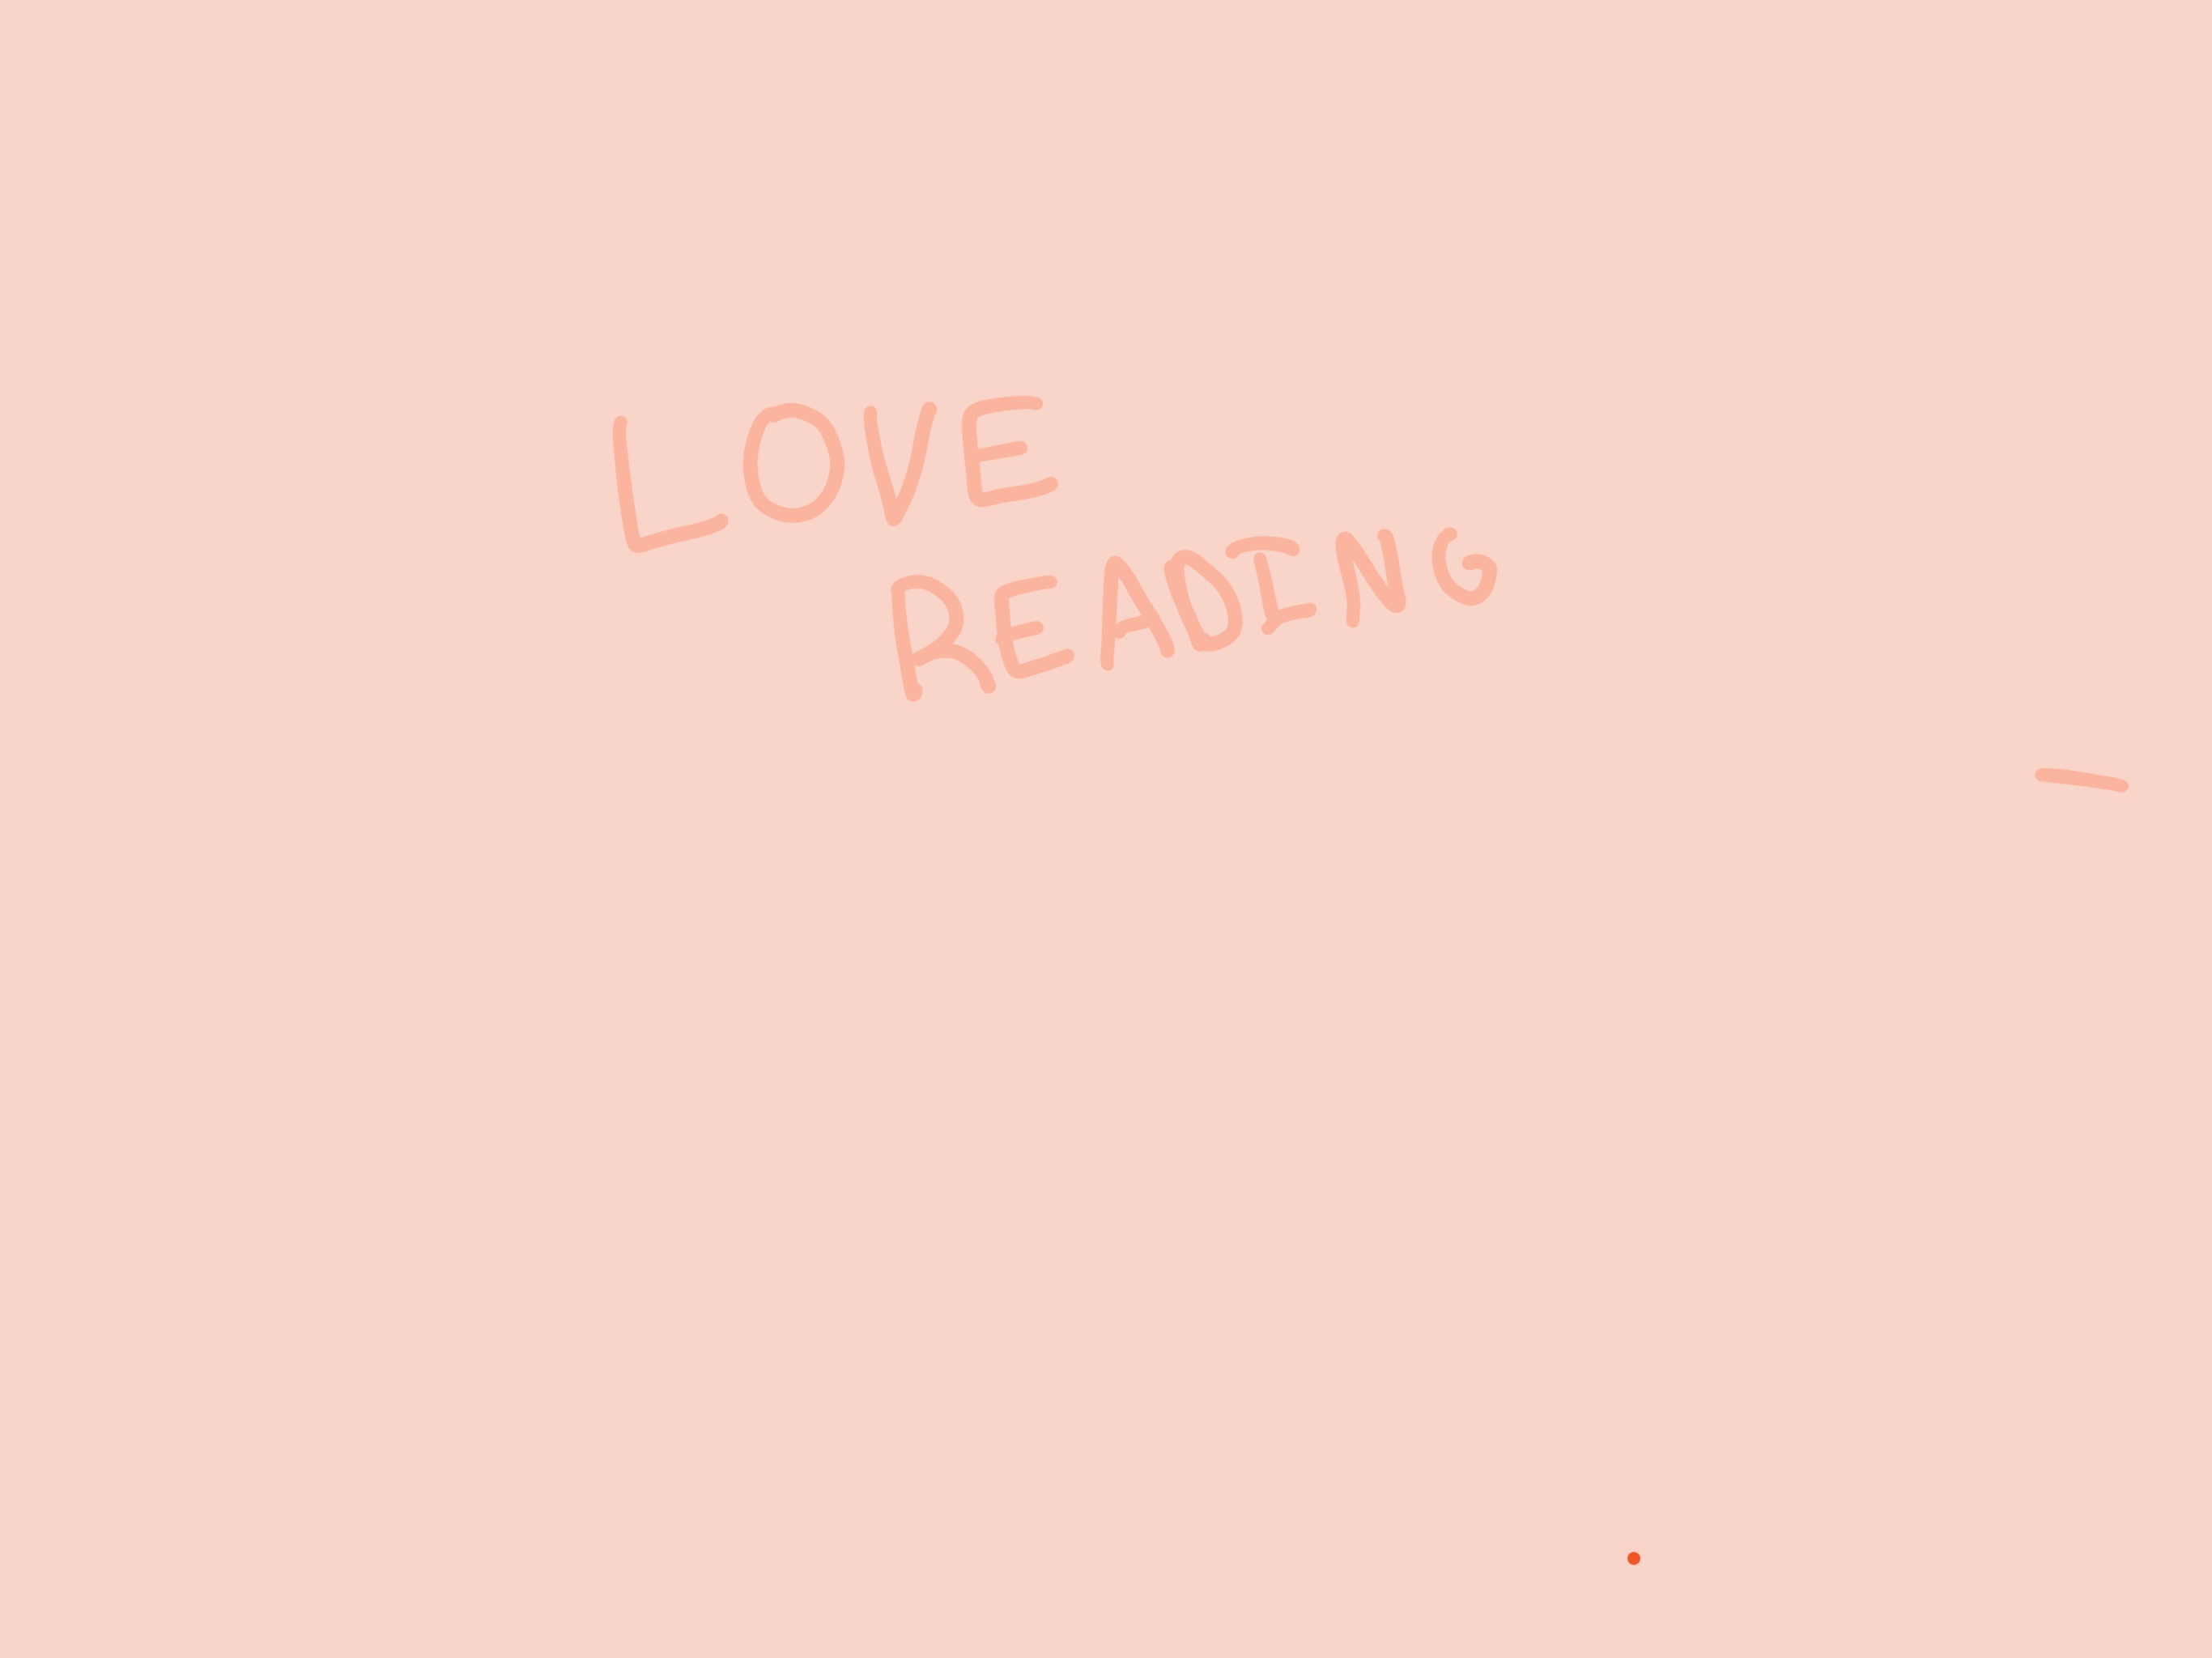 LOVE
READING